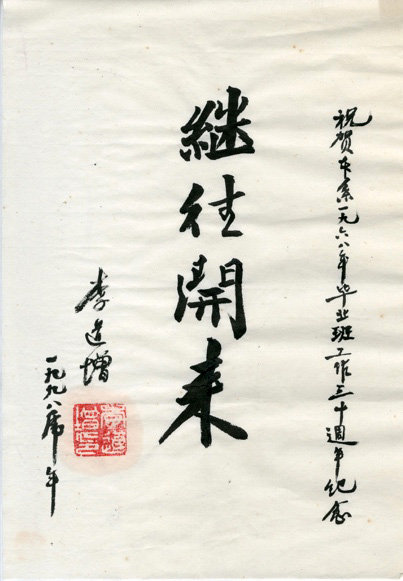 祝贺本系一九六八年毕业班工作三十週年纪念
継往開来
李道增
一九九八虎年